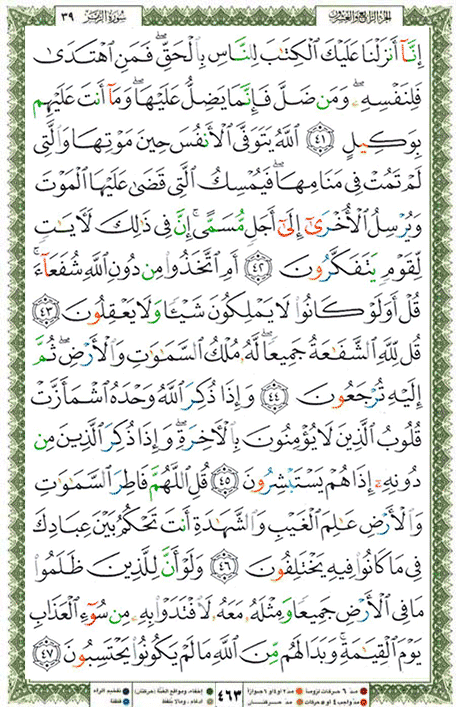 الجزء الرابع والعشرون
سورة الزمر ٣٩
إِنَّآ أَنزَلْنَا عَلَيْكَ ٱلْكِتَٰبَ لِلنَّاسِ بِٱلْحَقِّ ۖ فَمَنِ ٱهْتَدَىٰ
فَلِنَفْسِهِۦ ۖ وَمَن ضَلَّ فَإِنَّمَا يَضِلُّ عَلَيْهَا ۖ وَمَآ أَنتَ عَلَيْهِم
بِوَكِيلٍ ٤١ ٱللَّهُ يَتَوَفَّى ٱلْأَنفُسَ حِينَ مَوْتِهَا وَٱلَّتِى
لَمْ تَمُتْ فِى مَنَامِهَا ۖ فَيُمْسِكُ ٱلَّتِى قَضَىٰ عَلَيْهَا ٱلْمَوْتَ
وَيُرْسِلُ ٱلْأُخْرَىٰٓ إِلَىٰٓ أَجَلٍ مُّسَمًّى ۚ إِنَّ فِى ذَٰلِكَ لَءَايَٰتٍ
لِّقَوْمٍ يَتَفَكَّرُونَ ٤٢ أَمِ ٱتَّخَذُوا۟ مِن دُونِ ٱللَّهِ شُفَعَآءَ ۚ
قُلْ أَوَلَوْ كَانُوا۟ لَا يَمْلِكُونَ شَيْـًٔا وَلَا يَعْقِلُونَ ٤٣
قُل لِّلَّهِ ٱلشَّفَٰعَةُ جَمِيعًا ۖ لَّهُۥ مُلْكُ ٱلسَّمَٰوَٰتِ وَٱلْأَرْضِ ۖ ثُمَّ
إِلَيْهِ تُرْجَعُونَ ٤٤ وَإِذَا ذُكِرَ ٱللَّهُ وَحْدَهُ ٱشْمَأَزَّتْ
قُلُوبُ ٱلَّذِينَ لَا يُؤْمِنُونَ بِٱلْءَاخِرَةِ ۖ وَإِذَا ذُكِرَ ٱلَّذِينَ مِن
دُونِهِۦٓ إِذَا هُمْ يَسْتَبْشِرُونَ ٤٥ قُلِ ٱللَّهُمَّ فَاطِرَ ٱلسَّمَٰوَٰتِ
وَٱلْأَرْضِ عَٰلِمَ ٱلْغَيْبِ وَٱلشَّهَٰدَةِ أَنتَ تَحْكُمُ بَيْنَ عِبَادِكَ
فِى مَا كَانُوا۟ فِيهِ يَخْتَلِفُونَ ٤٦ وَلَوْ أَنَّ لِلَّذِينَ ظَلَمُوا۟
مَا فِى ٱلْأَرْضِ جَمِيعًا وَمِثْلَهُۥ مَعَهُۥ لَٱفْتَدَوْا۟ بِهِۦ مِن سُوٓءِ ٱلْعَذَابِ
يَوْمَ ٱلْقِيَٰمَةِ ۚ وَبَدَا لَهُم مِّنَ ٱللَّهِ مَا لَمْ يَكُونُوا۟ يَحْتَسِبُونَ ٤٧
مد ٦ حركات لزوماً مد ٢ او ٤ او ٦ جوازاً
مد واجب ٤ او ٥ حركات مد حركتان
٤٦٣
إخفاء، ومواقع الغنة (حركتان) تفخيم الراء
ادغام، وما لا يلفظ قلقلة